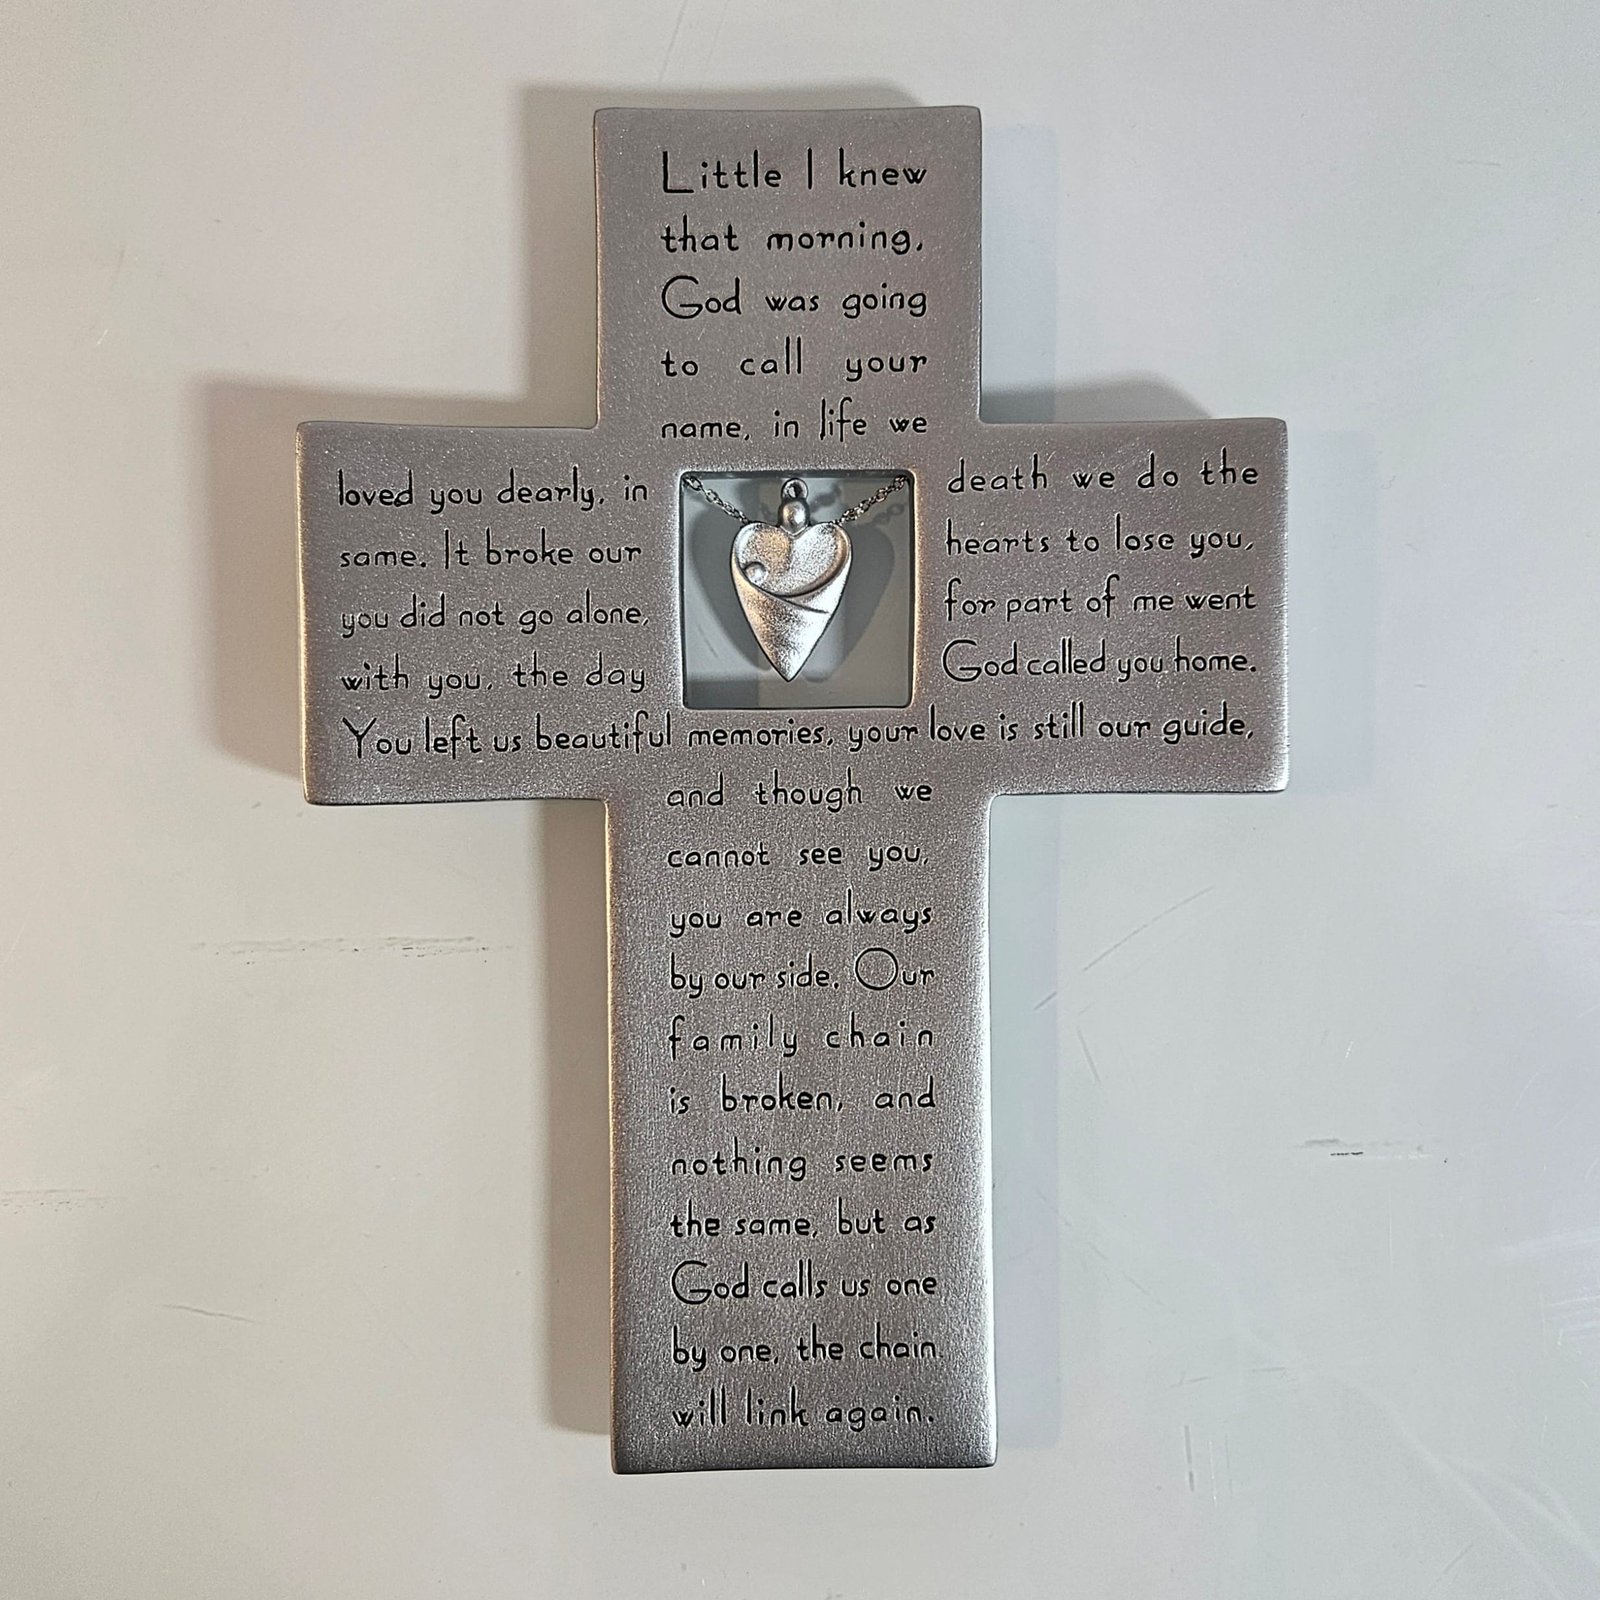 Little I knew
that morning,
God was going
to call your
name, in life we
loved you dearly, in death we do the
same. It broke our hearts to lose you,
you did not go alone, for part of me went
with you, the day God called you home.
You left us beautiful memories, your love is still our guide,
and though we
cannot see you,
you are always
by our side. Our
family chain
is broken, and
nothing seems
the same, but as
God calls us one
by one, the chain
will link again.